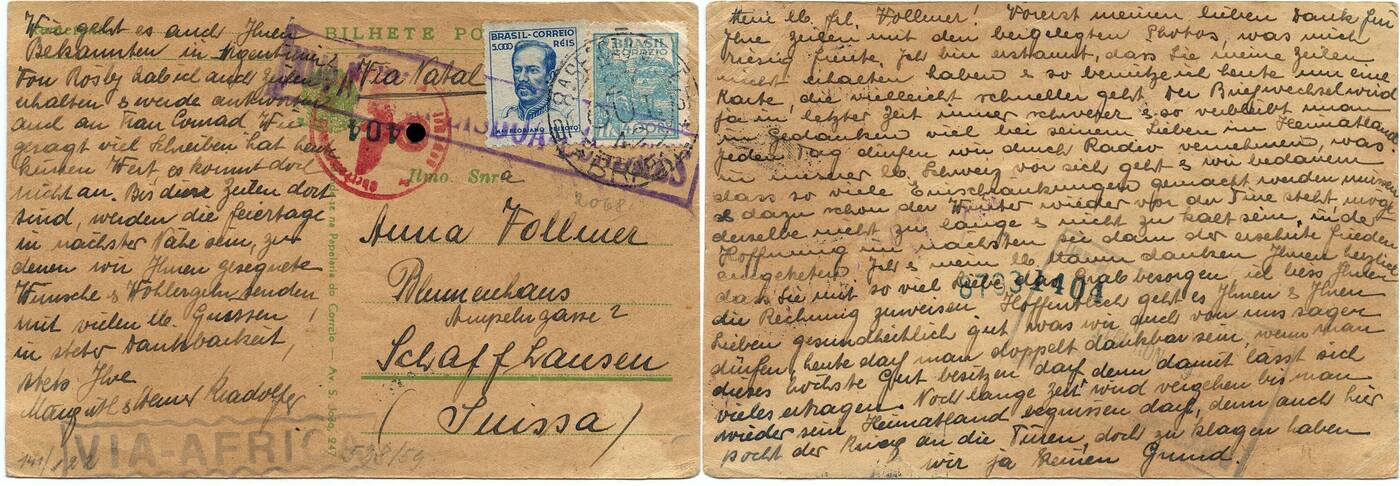 Wie geht es auch Ihnen
Bekannten in Argentinien?
Von Rosby habe ich auch Zeilen
erhalten & werde antworten
auch an Frau Conrad. Wie
gesagt viel Schreiben hat heute
keinen Wert es kommt doch
nicht an. Bis diese Zeilen dort
sind, werden die Feiertage
in nächster Nähe sein, zu
denen wir Ihnen gesegnete
Wünsche & Wohlergehn senden
mit vielen lb. Grüssen,
in steter Dankbarkeit,
stets Ihre
Margrit & Werner
BILHETE PO
Via Natal
BRASIL-CORREIO
5.000 RÉIS
MAL FLORIANO PEIXOTO
BRASIL
CORREIO
404
Ilmo. Snr a
2068
Anna Vollmer
Blumenhaus
Ampelngasse 2
Schaffhausen
(Suissa)
na Papelaria do Correio — Av. S. João, 247
VIA-AFRICA
141/122
538/59
Mein lb. Frl. Vollmer! Vorerst meinen lieben Dank für
Ihre Zeilen mit den beigelegten Photos, was mich
riesig freute. Ich bin erstaunt, dass Sie meine Zeilen
nicht erhalten haben & so benütze ich heute nur eine
Karte, die vielleicht schneller geht. Der Briefwechsel wird
ja in letzter Zeit immer schwerer & so verbleibt man
in Gedanken viel bei seinen Lieben im Heimatland
jeden Tag dürfen wir durch Radio vernehmen, was
in unserer lb. Schweiz vor sich geht & wir bedauern
dass so viele Einschränkungen gemacht werden müssen
& dazu schon der Winter wieder vor der Türe steht, mög
derselbe nicht zu lange & nicht zu kalt sein, in der
Hoffnung im nächsten sei dann der ersehnte Frieden
angetreten. Ich & mein lb. Mann danken Ihnen herzlich
dass Sie mit so viel Liebe das Grab besorgen, ich liess Ihnen
die Rechnung zuweisen. Hoffentlich geht es Ihnen & Ihren
Lieben gesundheitlich gut, was wir auch von uns sagen
dürfen, heute darf man doppelt dankbar sein, wenn man
dieses höchste Gut besitzen darf, denn damit lässt sich
vieles ertragen. Noch lange Zeit wird vergehen bis man
wieder sein Heimatland begrüssen darf, denn auch hier
pocht der Krieg an die Türen, doch zu klagen haben
wir ja keinen Grund.
87331404